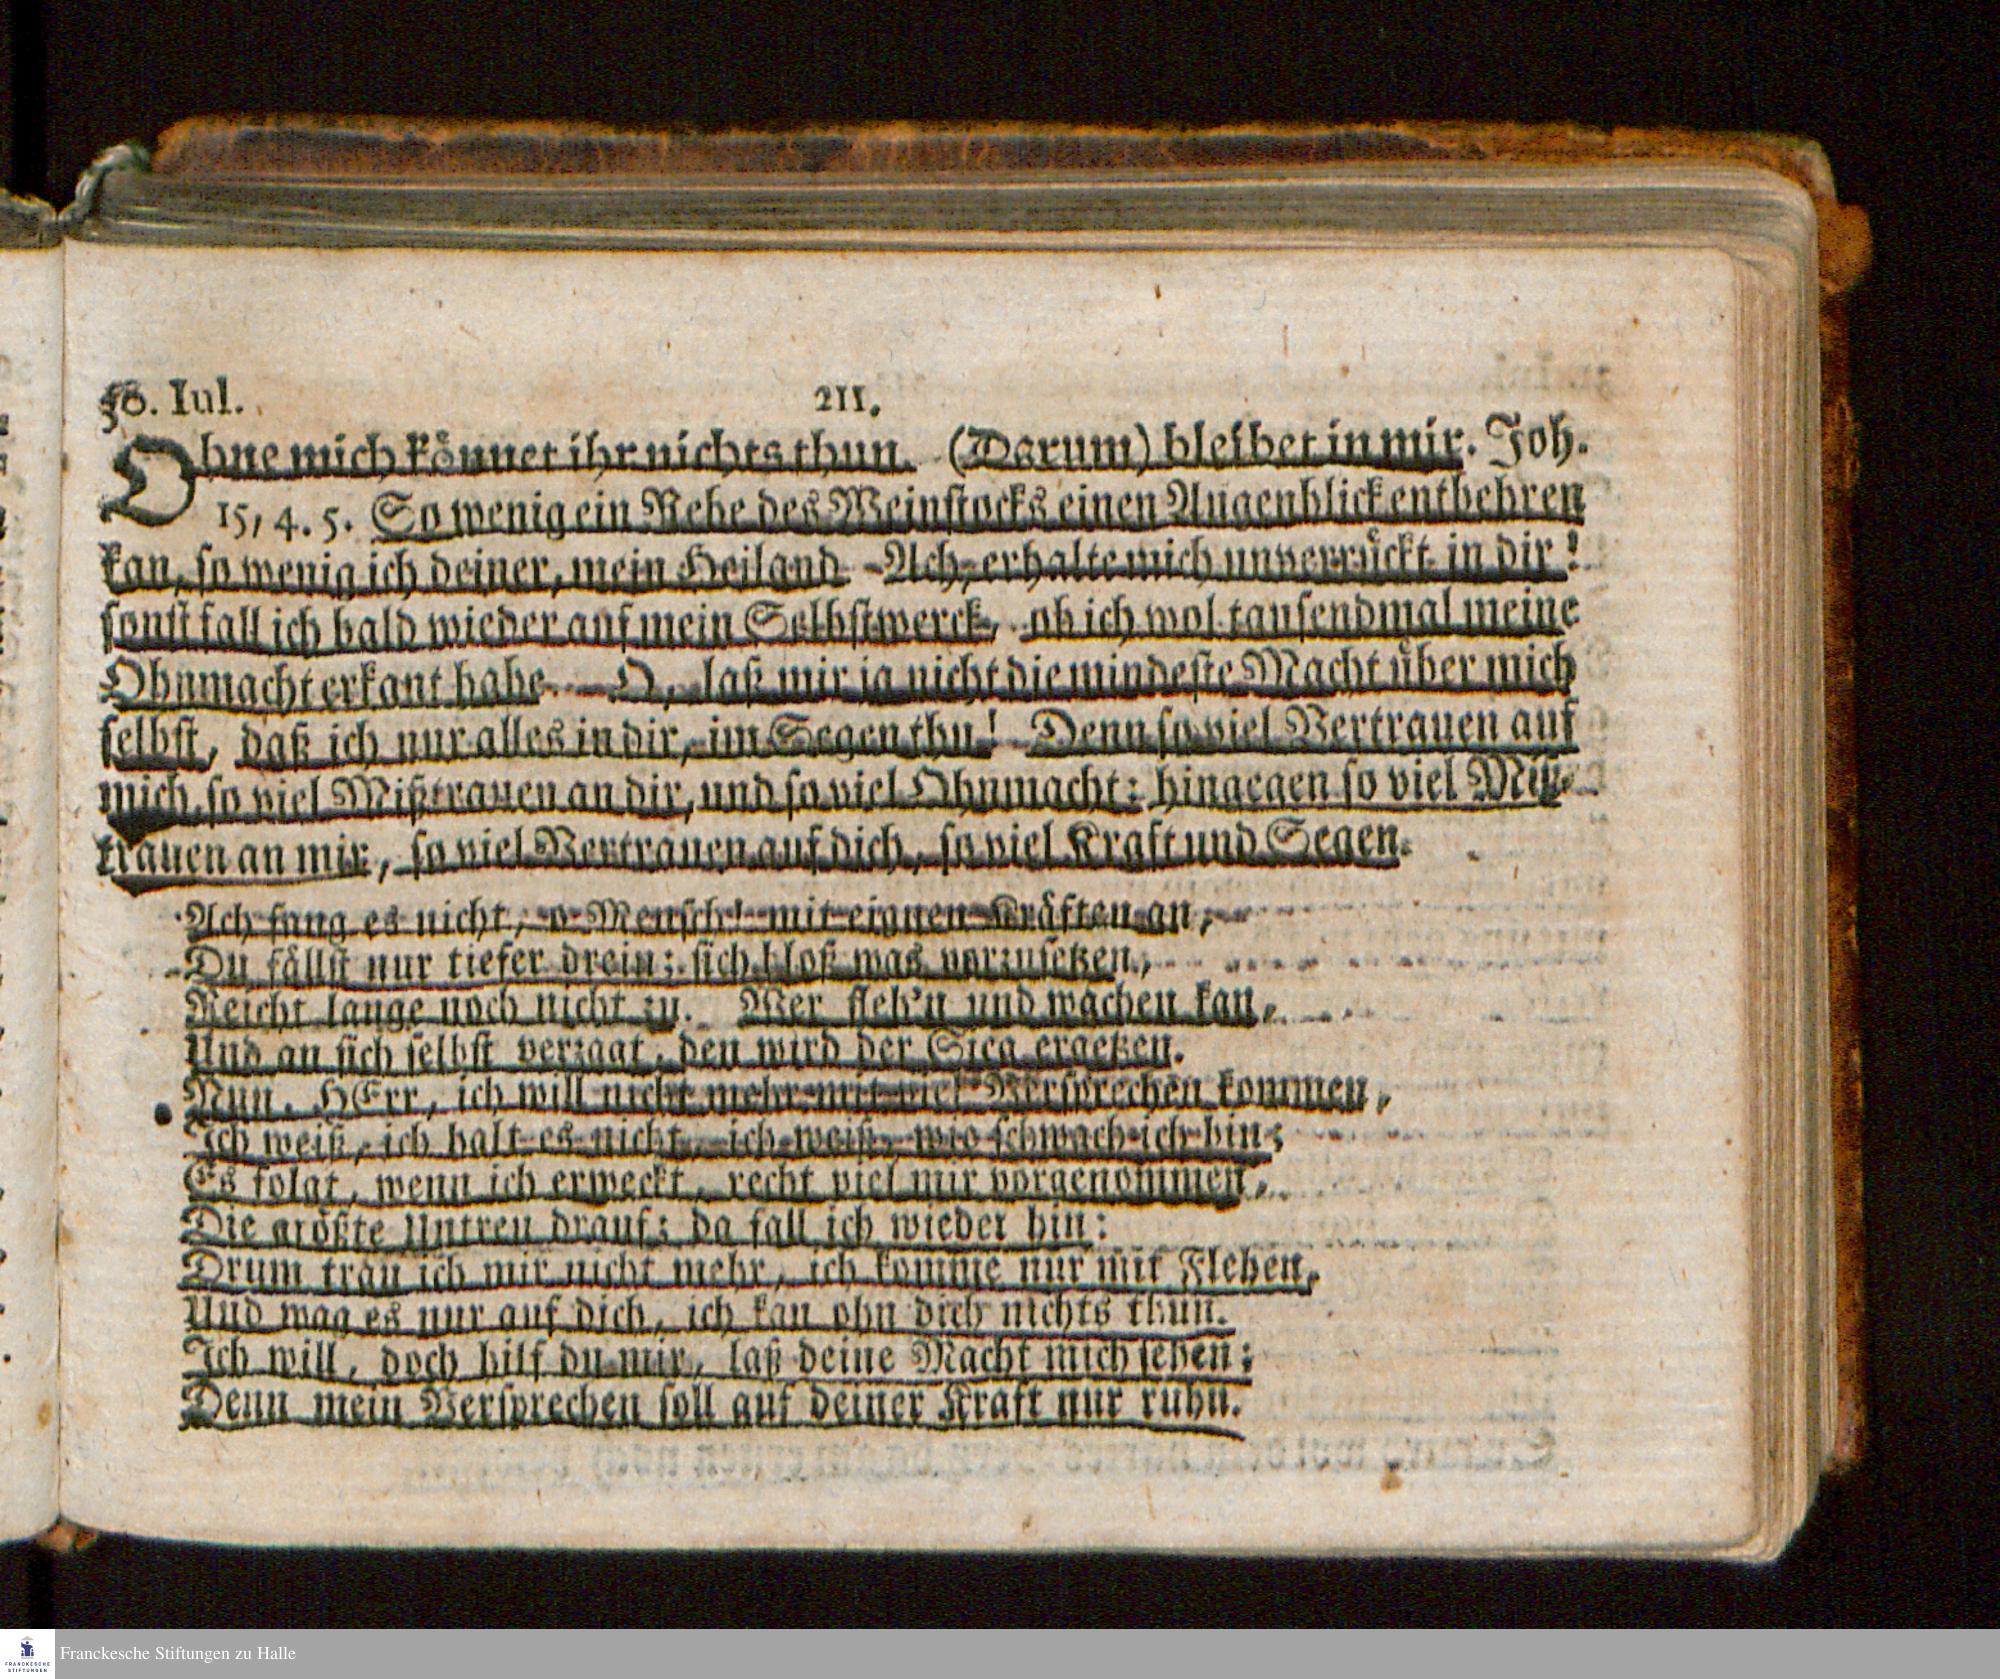 30. Iul. 211.
Ohne mich könnet ihr nichts thun. (Darum) bleibet in mir. Joh.
15, 4. 5. So wenig ein Rebe des Weinstocks einen Augenblick entbehren
kan, so wenig ich deiner, mein Heiland. Ach, erhalte mich unverrückt in dir!
sonst fall ich bald wieder auf mein Selbstwerck, ob ich wol tausendmal meine
Ohnmacht erkant habe. O, laß mir ja nicht die mindeste Macht über mich
selbst, daß ich nur alles in dir, im Segen thu! Denn so viel Vertrauen auf
mich, so viel Mißtrauen an dir, und so viel Ohnmacht; hingegen so viel Miß-
trauen an mir, so viel Vertrauen auf dich, so viel Kraft und Segen.
Ach fang es nicht, o Mensch! mit eignen Kräften an,
Du fällst nur tiefer drein; sich bloß was vorzusetzen,
Reicht lange noch nicht zu. Wer fleh'n und wachen kan,
Und an sich selbst verzagt, den wird der Sieg ergetzen.
Nun, HErr, ich will nicht mehr mit viel Versprechen kommen,
Ich weiß, ich halt es nicht, ich weiß, wie schwach ich bin;
Es folgt, wenn ich erweckt, recht viel mir vorgenommen,
Die größte Untreu drauf; da fall ich wieder hin:
Drum trau ich mir nicht mehr, ich komme nur mit Flehen,
Und wag es nur auf dich, ich kan ohn dich nichts thun.
Ich will, doch hilf du mir, laß deine Macht mich sehen;
Denn mein Versprechen soll auf deiner Kraft nur ruhn.
FRANCKESCHE
STIFTUNGEN
Franckesche Stiftungen zu Halle